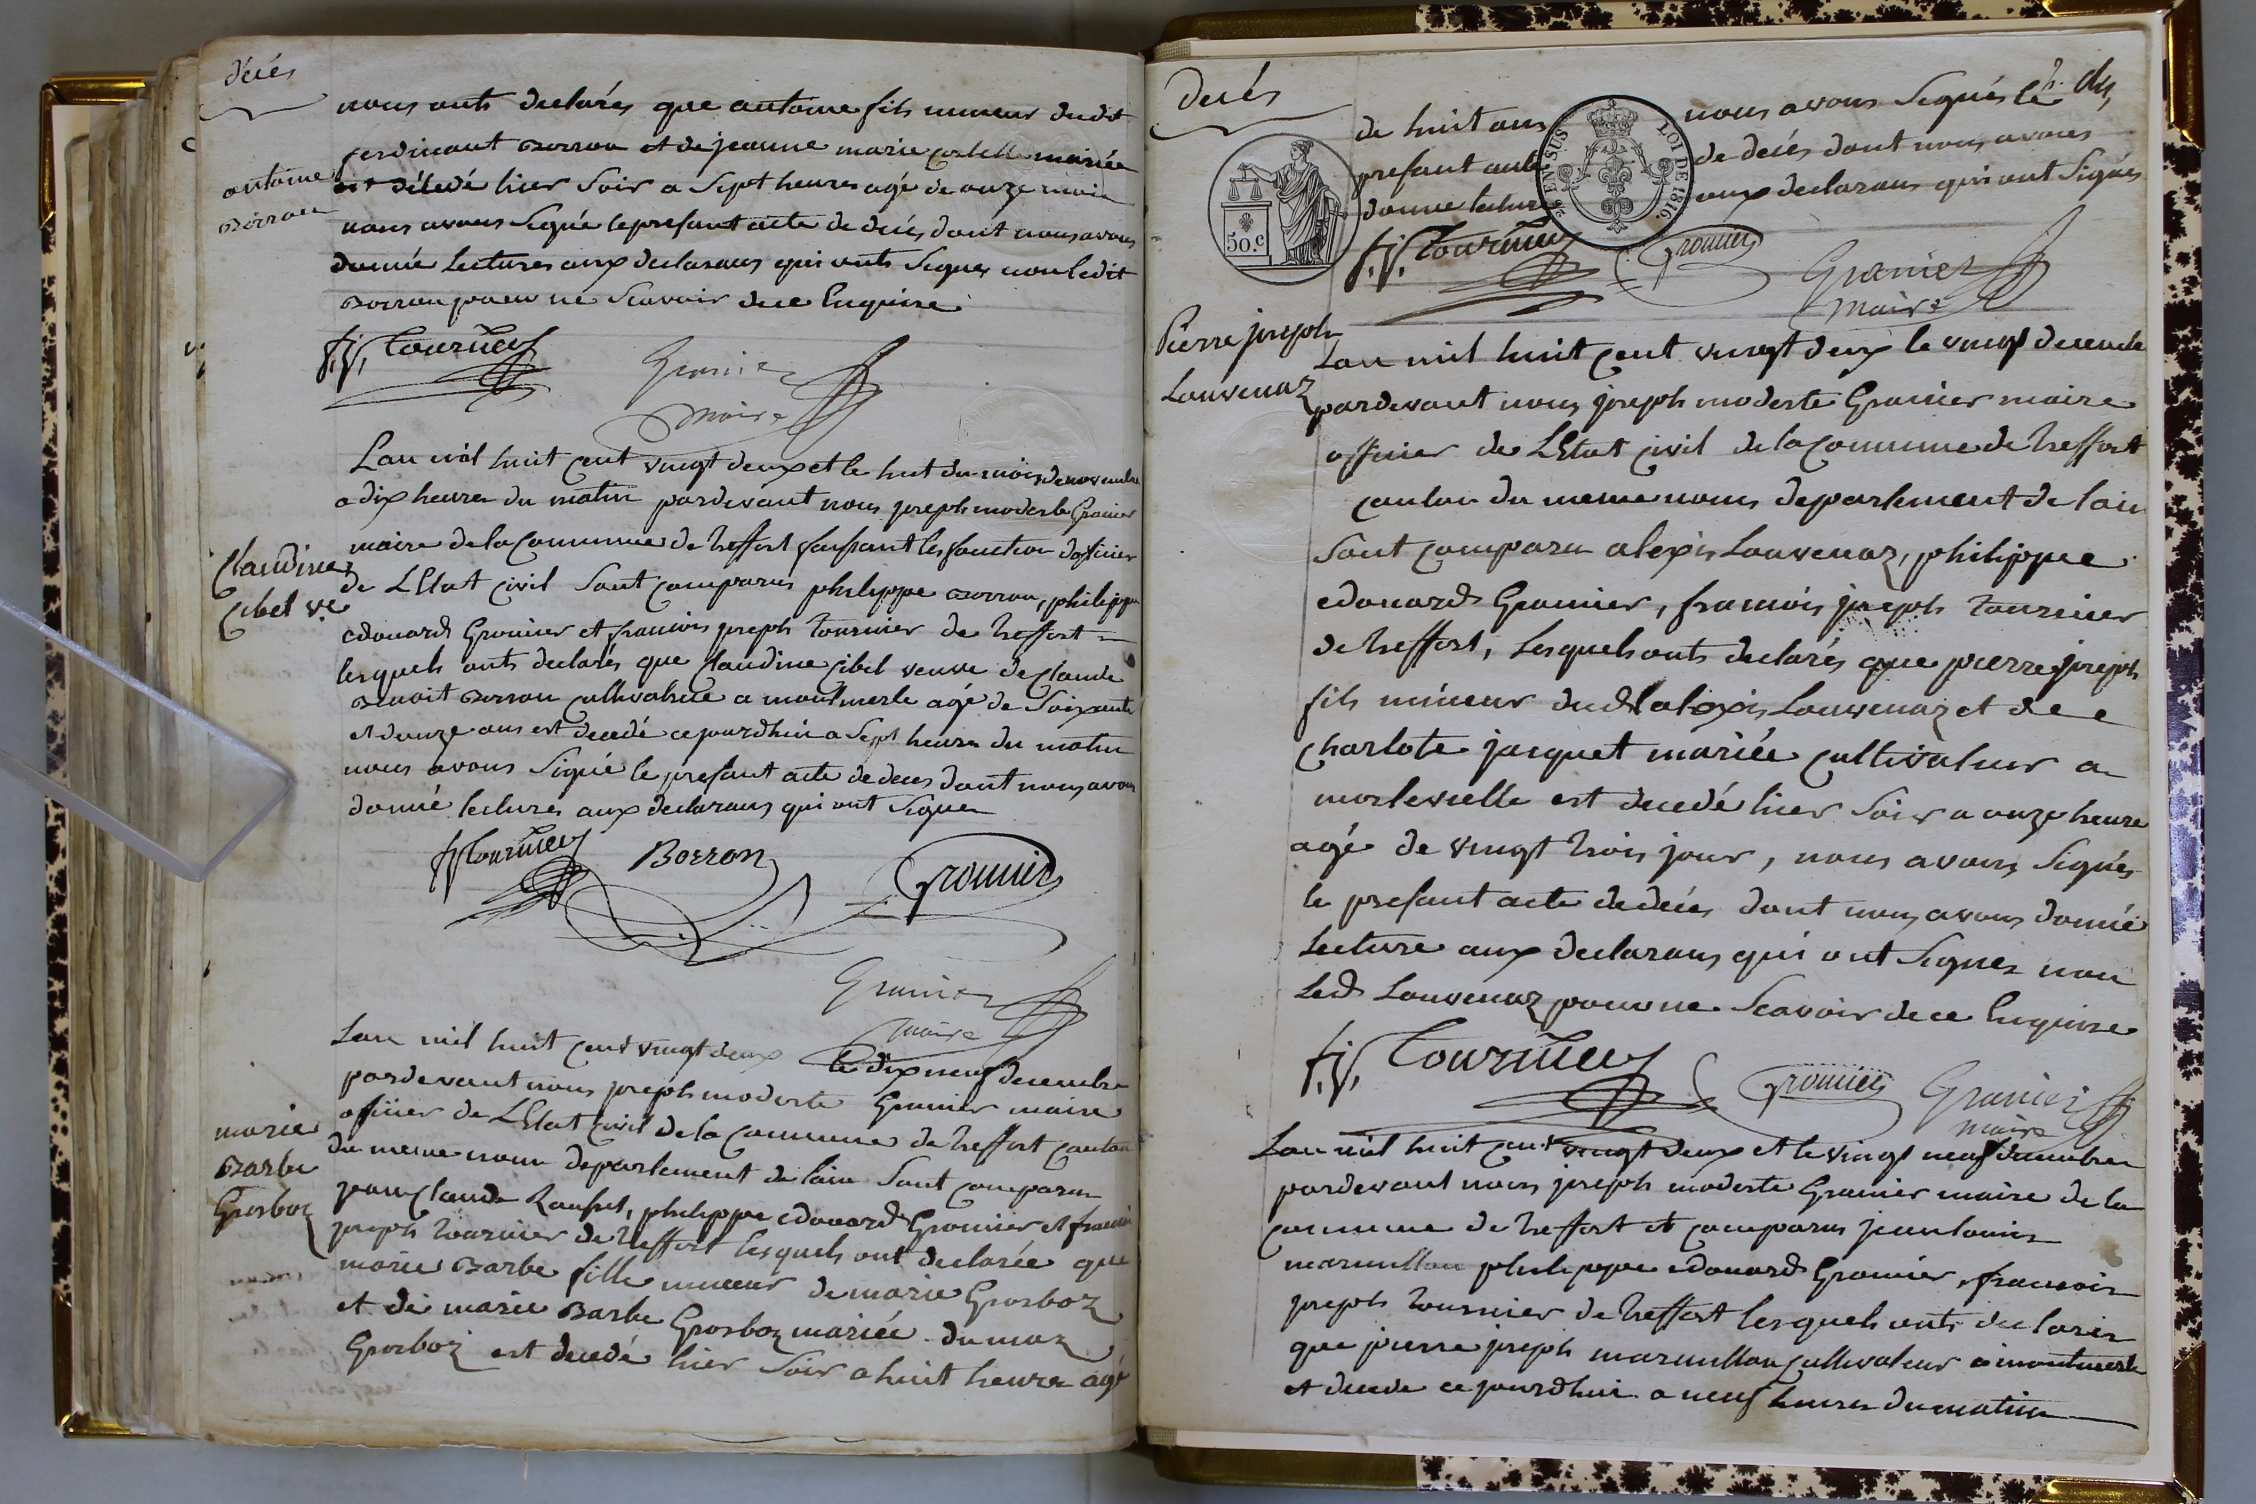 décés
nous onts declarés que antoine fils mineur dudit
ferdinant Borron et de jeanne marie mariée
est décedé hier Soir a Sept heures agé de onze mois
antoine
Borron
nous avons Signé le présant acte de decés dont nous avons
donnée Lectures aux declarans qui onts Signes non ledit
Borron pour ne Scavoir de ce Enquise
f.j. Tournier
Granier
maire
Lan mil huit cent vingt deux et le huit du mois de novembre
a dix heures du matin pardevant nous joseph modeste Granier
maire de la Commune de treffort faissant les fonction doficier
Claudine
Cibet ve.
de LEtat Civil Sont comparus philippe Borron, philippe
edouard Gromier et francois joseph tournier de treffort
lesquels onts declarés que Claudine Cibet veuve de Claude
Benoit Borron cultivatrice a montmerle agé de Soixante
et douze ans est decedé ce jourdhui a Sept heures du matin
nous avons Signé le présant acte de deces dont nous avons
donné lectures aux declarans qui ont Signer
fj Tournier Borron Gromier
Granier
maire
Lan mil huit cent vingt deux le dix neuf decembre
pardevant nous joseph modeste Granier maire
officier de LEtat Civil de la Commune de treffort canton
marie
Barbe
Grosboz
du meme nom departement de lain Sont comparu
jean Claude, philippe edouard Gromier et francois
joseph tournier de treffort lesquels ont declarée que
marie Barbe fille mineur de marie Grosboz
et de marie Barbe Grosboz mariée du maz
Grosboz est decedé hier Soir a huit heures agé
decés
de huit ans nous avons Signés le
présant acte de decés dont nous avons
donne lecture aux declarans qui ont Signés
50.c
EN SUS
LOI DE 1816.
f.j. Tournier Gromier Granier
maire
Pierre joseph
Louvenaz
Lan mil huit cent vingt deux le vingt decembre
pardevant nous joseph modeste Granier maire
officier de LEtat Civil de la Commune de treffort
canton du meme noms departement de lain
Sont comparu alexis Louvenaz, philippe
edouard Gromier, francois joseph tournier
de treffort, Lesquels onts declarés que pierre joseph
fils mineur dudt alexis Louvenaz et de
Charlote jacquet mariée cultivateur a
est decedé hier Soir a onze heure
agé de vingt trois jour, nous avons Signés
le présant acte de decés dont nous avons donné
Lecture aux declarans qui ont Signer non
Led Louvenaz pour ne Scavoir de ce Enquise
f.j. Tournier Gromier Granier
maire
Lan mil huit cent vingt deux et le vingt neuf decembre
pardevant nous joseph modeste Granier maire de la
Commune de treffort et comparus jean louis
marmillon philippe edouard Gromier, francois
joseph tournier de treffort lesquels onts declarer
que pierre joseph marmillon cultivateur a montmerle
et decede ce jourdhui a neuf heures du matin